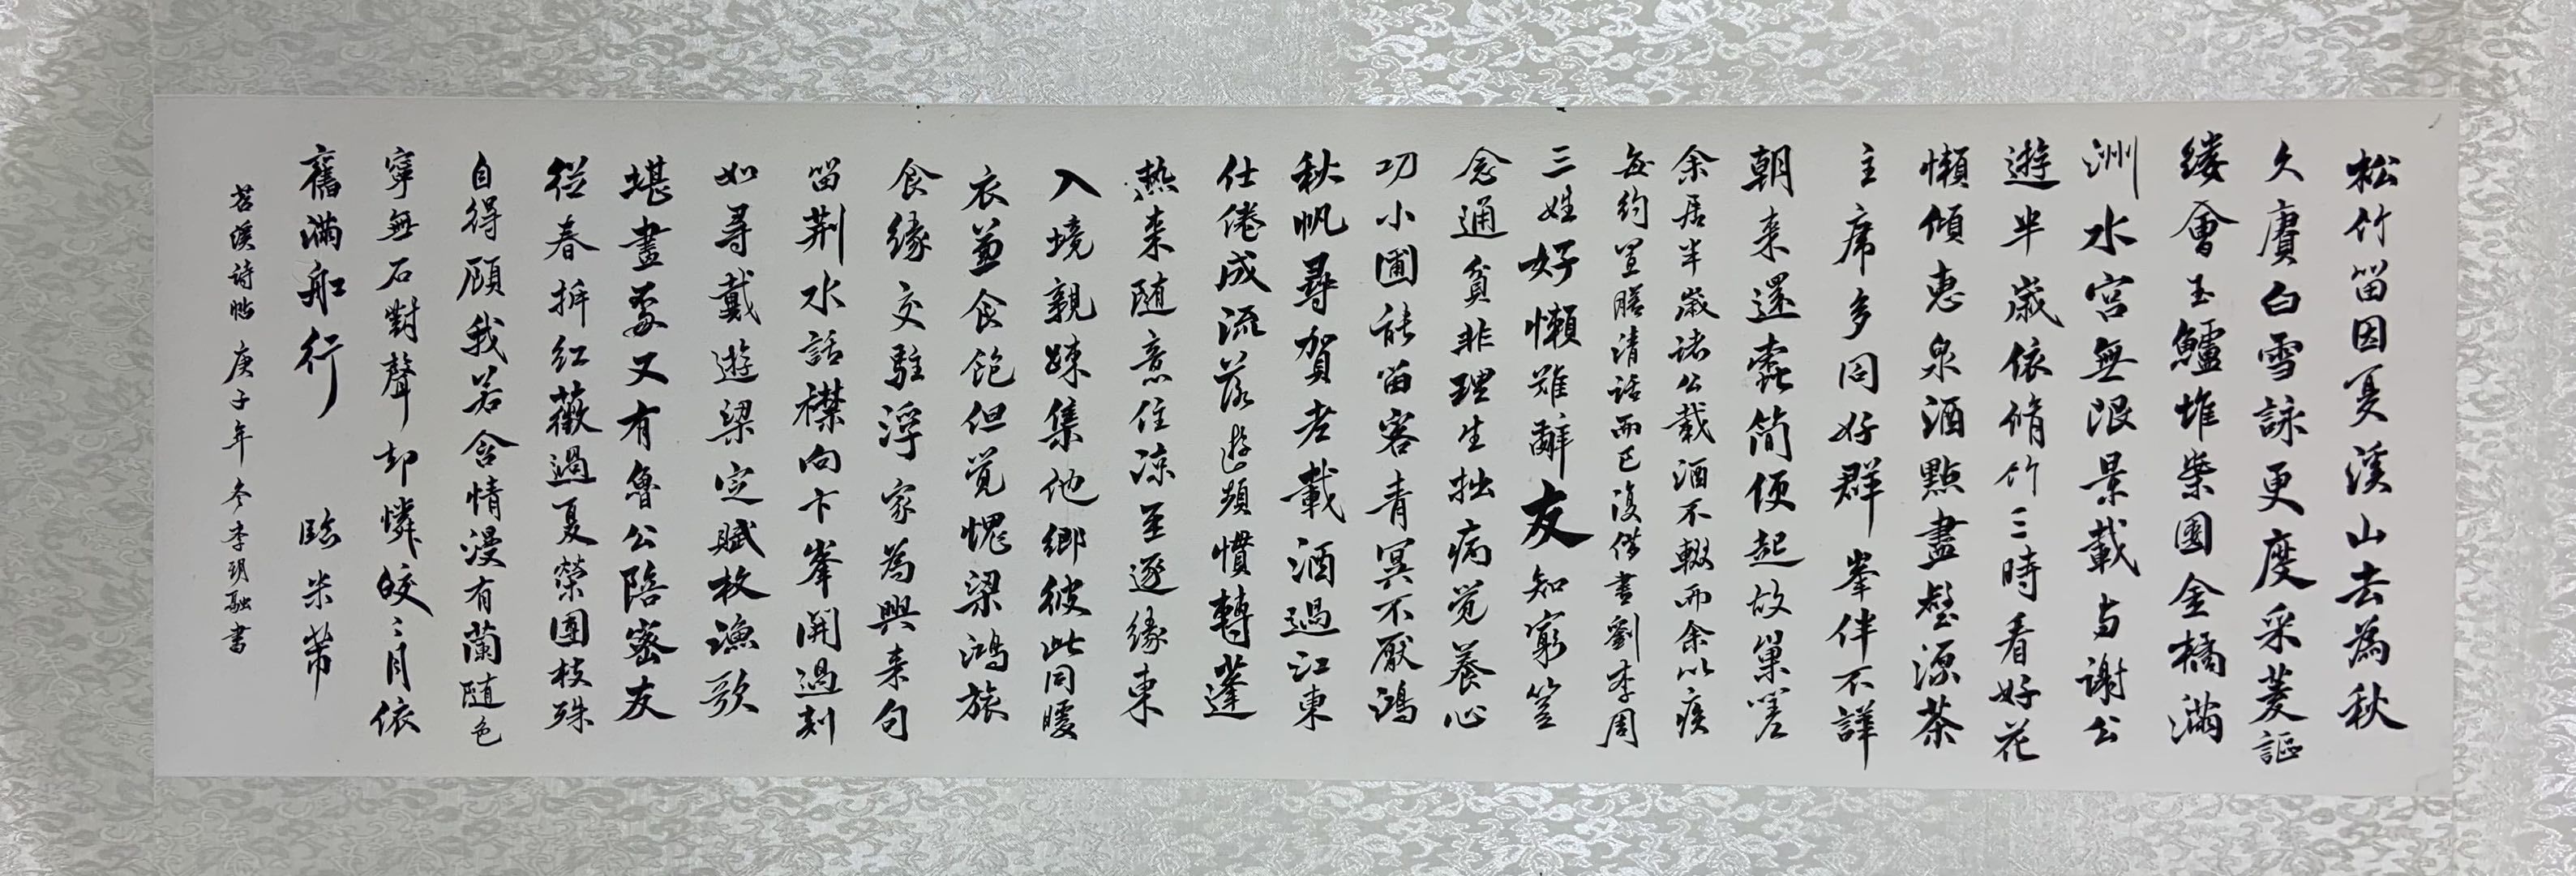 松竹留因夏溪山去為秋
久賡白雪詠更度采菱謳
縷會玉鱸堆案團金橘滿
洲水宮無限景載与謝公
遊半歲依脩竹三時看好花
懶傾惠泉酒點盡壑源茶
主席多同好群峯伴不譁
朝来還蠹簡便起故巢嗟
余居半歲諸公載酒不輟而余以疾
每約置膳清話而已復借書劉李周
三姓好懶難辭友知窮笠
念通貧非理生拙病觉養心
功小圃能留客青冥不厭鴻
秋帆尋賀老載酒過江東
仕倦成流落遊頻慣轉蓬
热来随意住涼至逐緣東
入境親疎集他鄉彼此同暖
衣并食飽但觉愧梁鴻旅
食緣交駐浮家為興来句
留荆水話襟向卞峯開過剡
如尋戴遊梁定賦枚漁歌
堪畫處又有魯公陪密友
從春拆紅薇過夏榮團枝殊
自得顧我若含情漫有蘭随色
寧無石對聲却憐皎〻月依
舊滿船行 臨米芾
苕溪詩帖 庚子年冬李玥融書